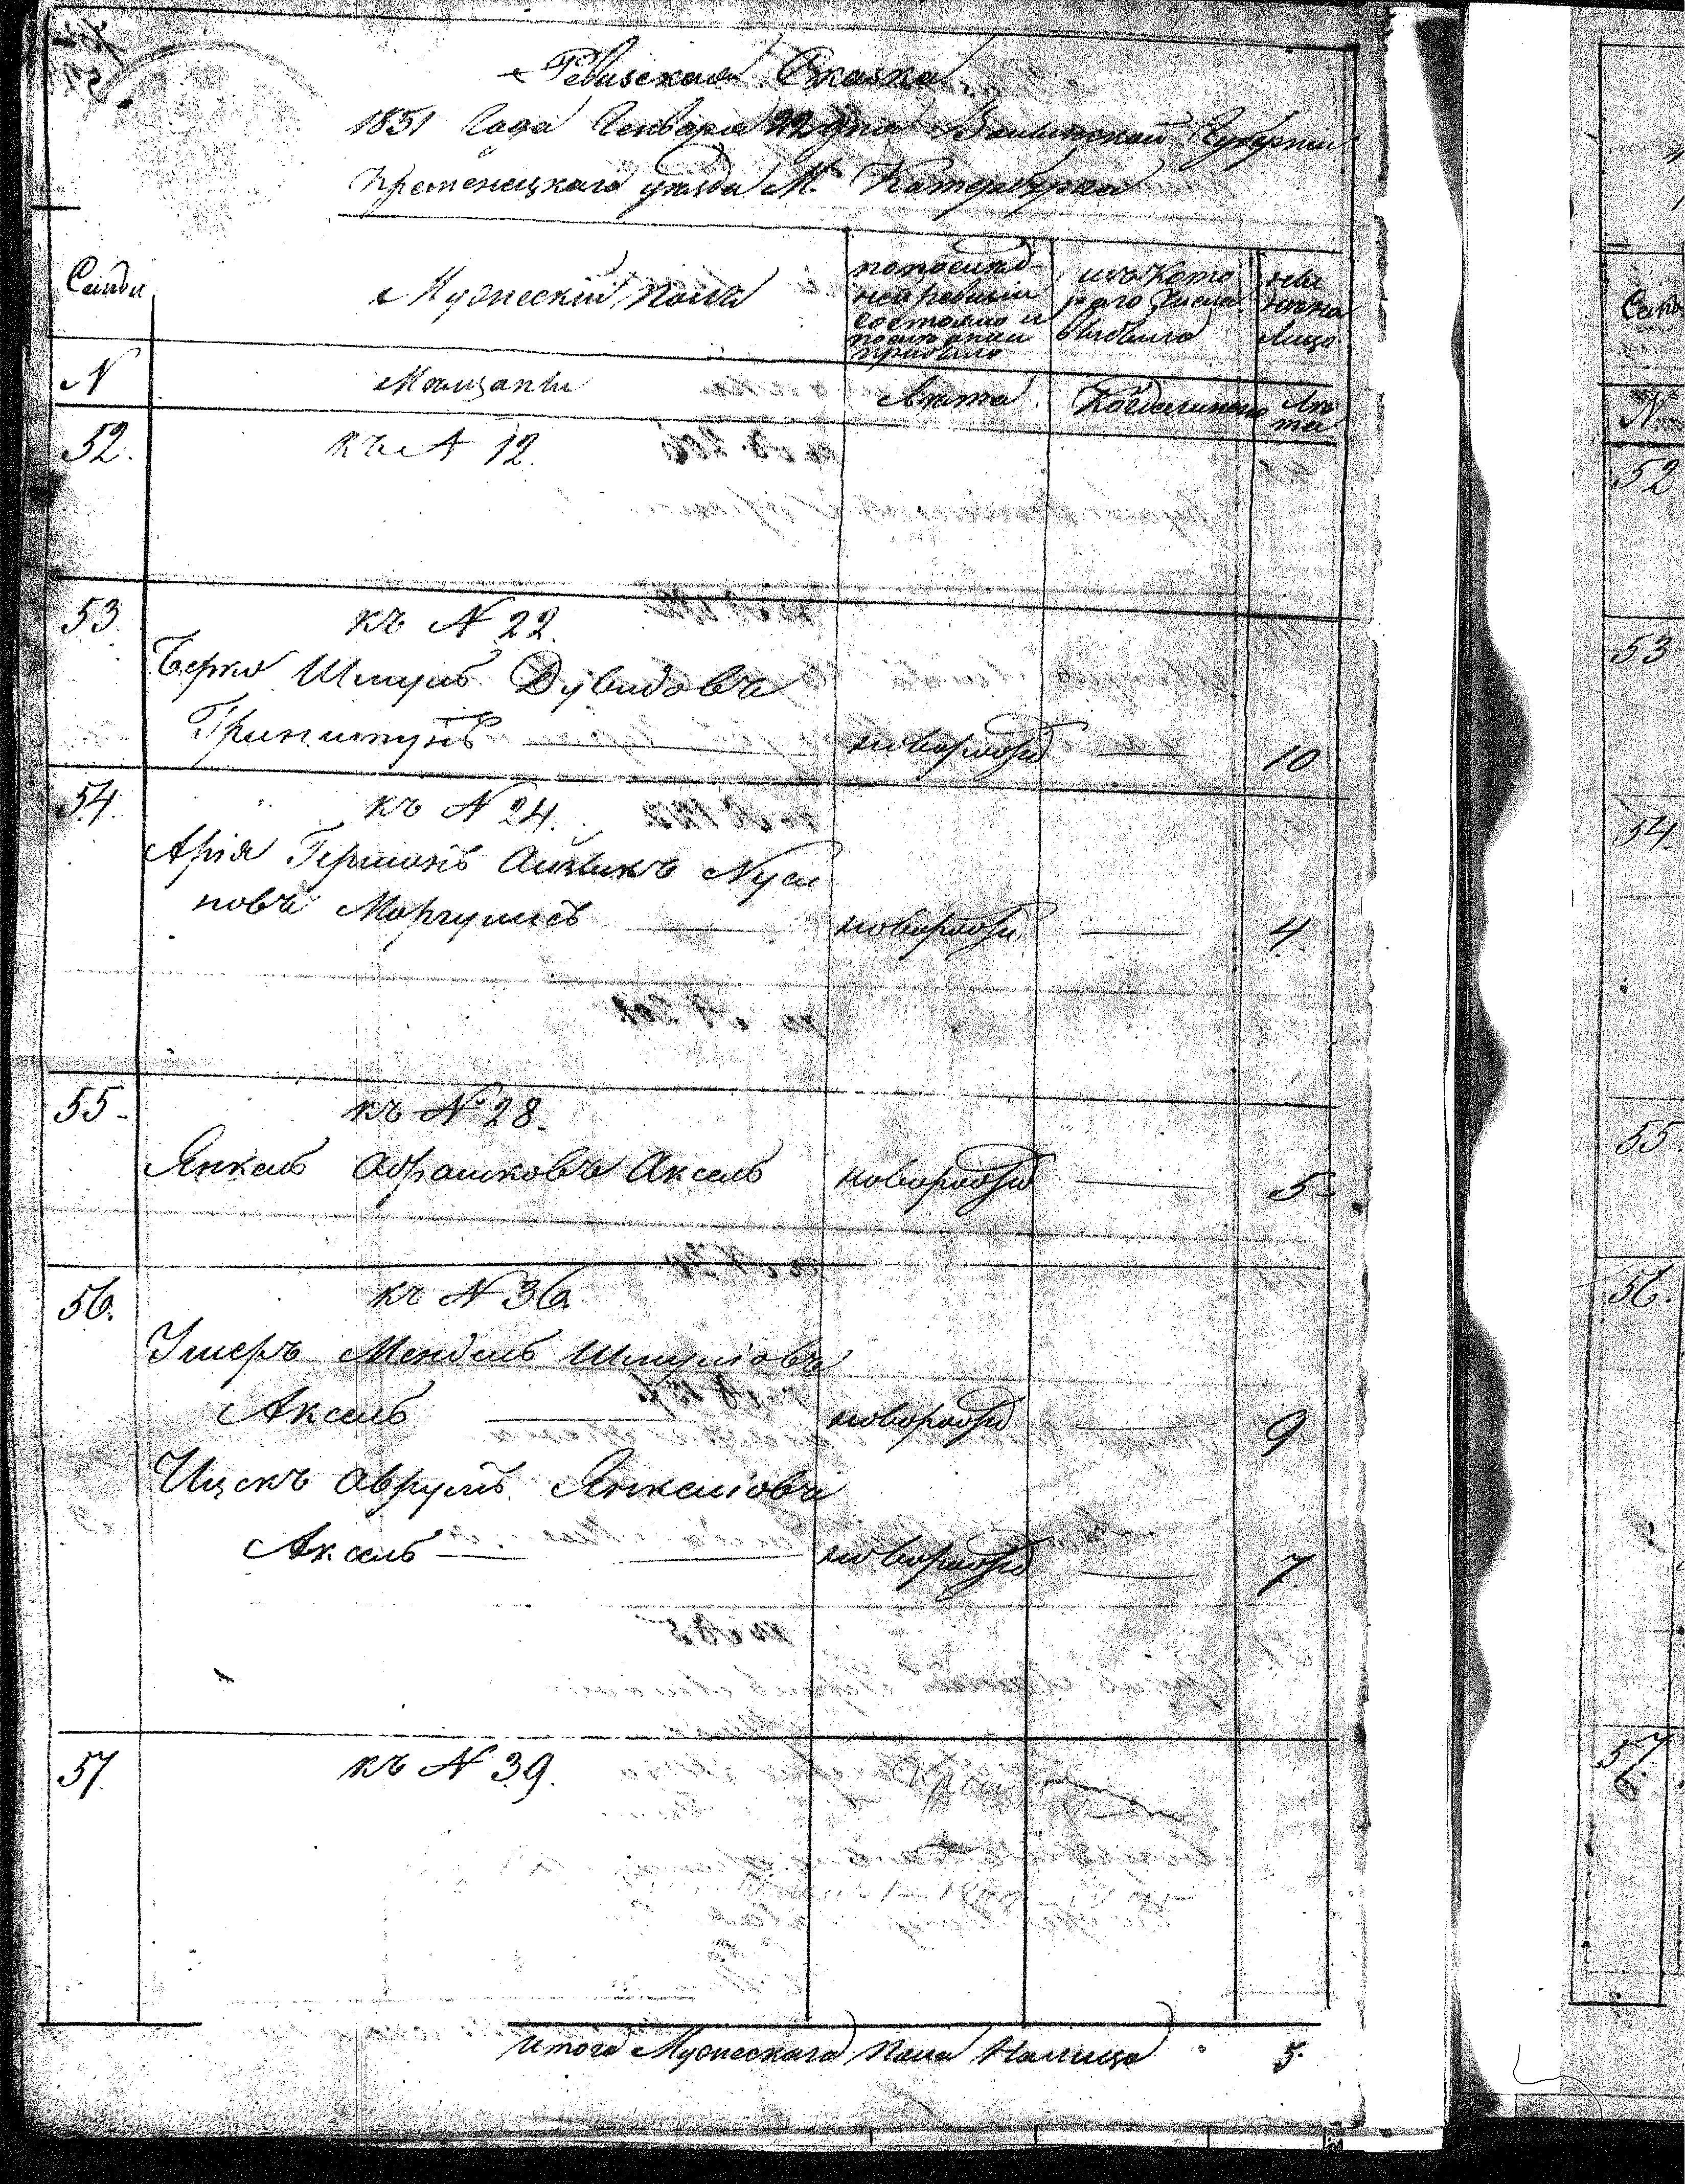 Ревизская Сказка
1851 Года Генваря 22 дня Волынской Губернии
Кременецкаго уезда М. Катербурга
Семьи
Мужескій полъ
по послѣд-
ней ревизіи
состояло и
послѣ оной
прибыло
изъ Кото
раго Числа
выбыло
ны
нѣ на
Лицо
N
Мѣщанъ
Лѣта
Когда именно
Лѣ
та
52.
къ N 12.
53.
къ N 22.
Берко Шмуль Дувидовъ
Гринштунъ новорожд 10
54.
къ N 24.
Арія Гершонъ Айзикъ Нуси
новъ Моргулисъ новорожд 4
55.
къ N 28.
Янкель Абрашковъ Аксель новорожд 5
56.
къ N 36
Ушеръ Мендель Шмуліовъ
Аксель новорожд 9
Ицекъ Аврумъ Янкеліовъ
Аксель новорожд 7
57.
къ N 39.
Итого Мужескаго Пола Налицо 5.
52
53
54.
55.
56.
57.